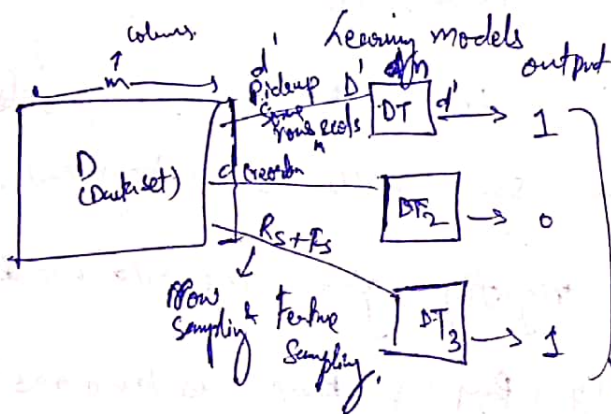 columns.
m
Learning models
output
d'
Pickup D'
Some
rows & cols
n
DT d' → 1
D
(Dataset)
d
DT2 → 0
RS + FS
Row
Sampling & Feature
Sampling.
DT3 → 1